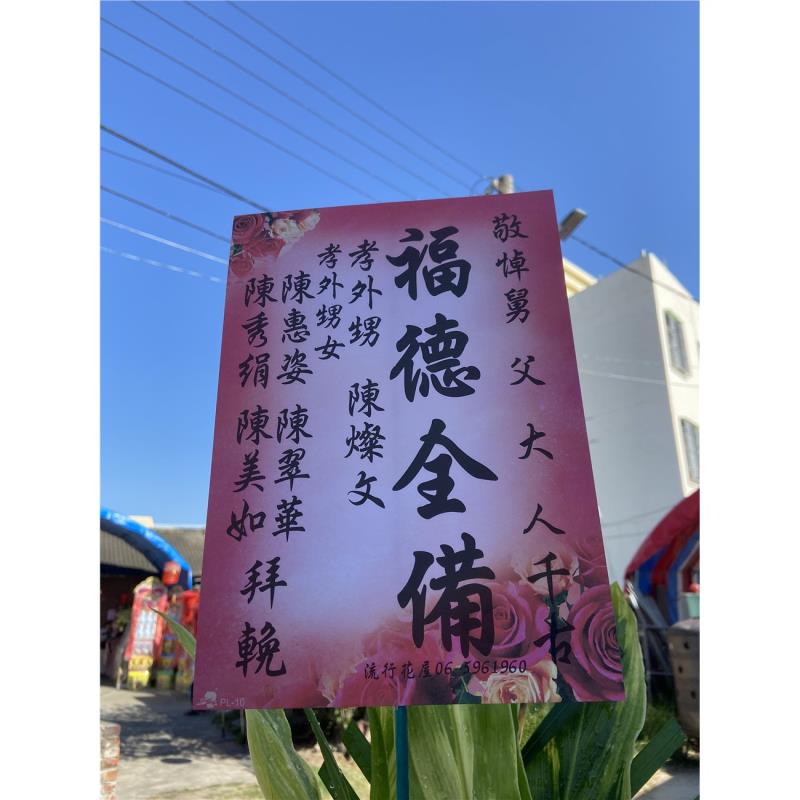 敬悼舅父大人千古
福德全備
孝外甥 陳燦文
孝外甥女 陳惠姿 陳翠華
陳秀絹 陳美如 拜輓
流行花屋06-5961960
PL-10